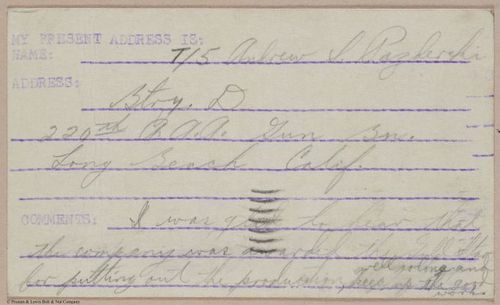 MY PRESENT ADDRESS IS:
NAME: T/5 Andrew S.
ADDRESS:
Btry. D
220th A.A.A. Gun Bn.
Long Beach Calif.
COMMENTS: I was glad to hear that
the company was awarded the
for putting out the production, keep up the good
work
© Preston & Lewis Bolt & Nut Company